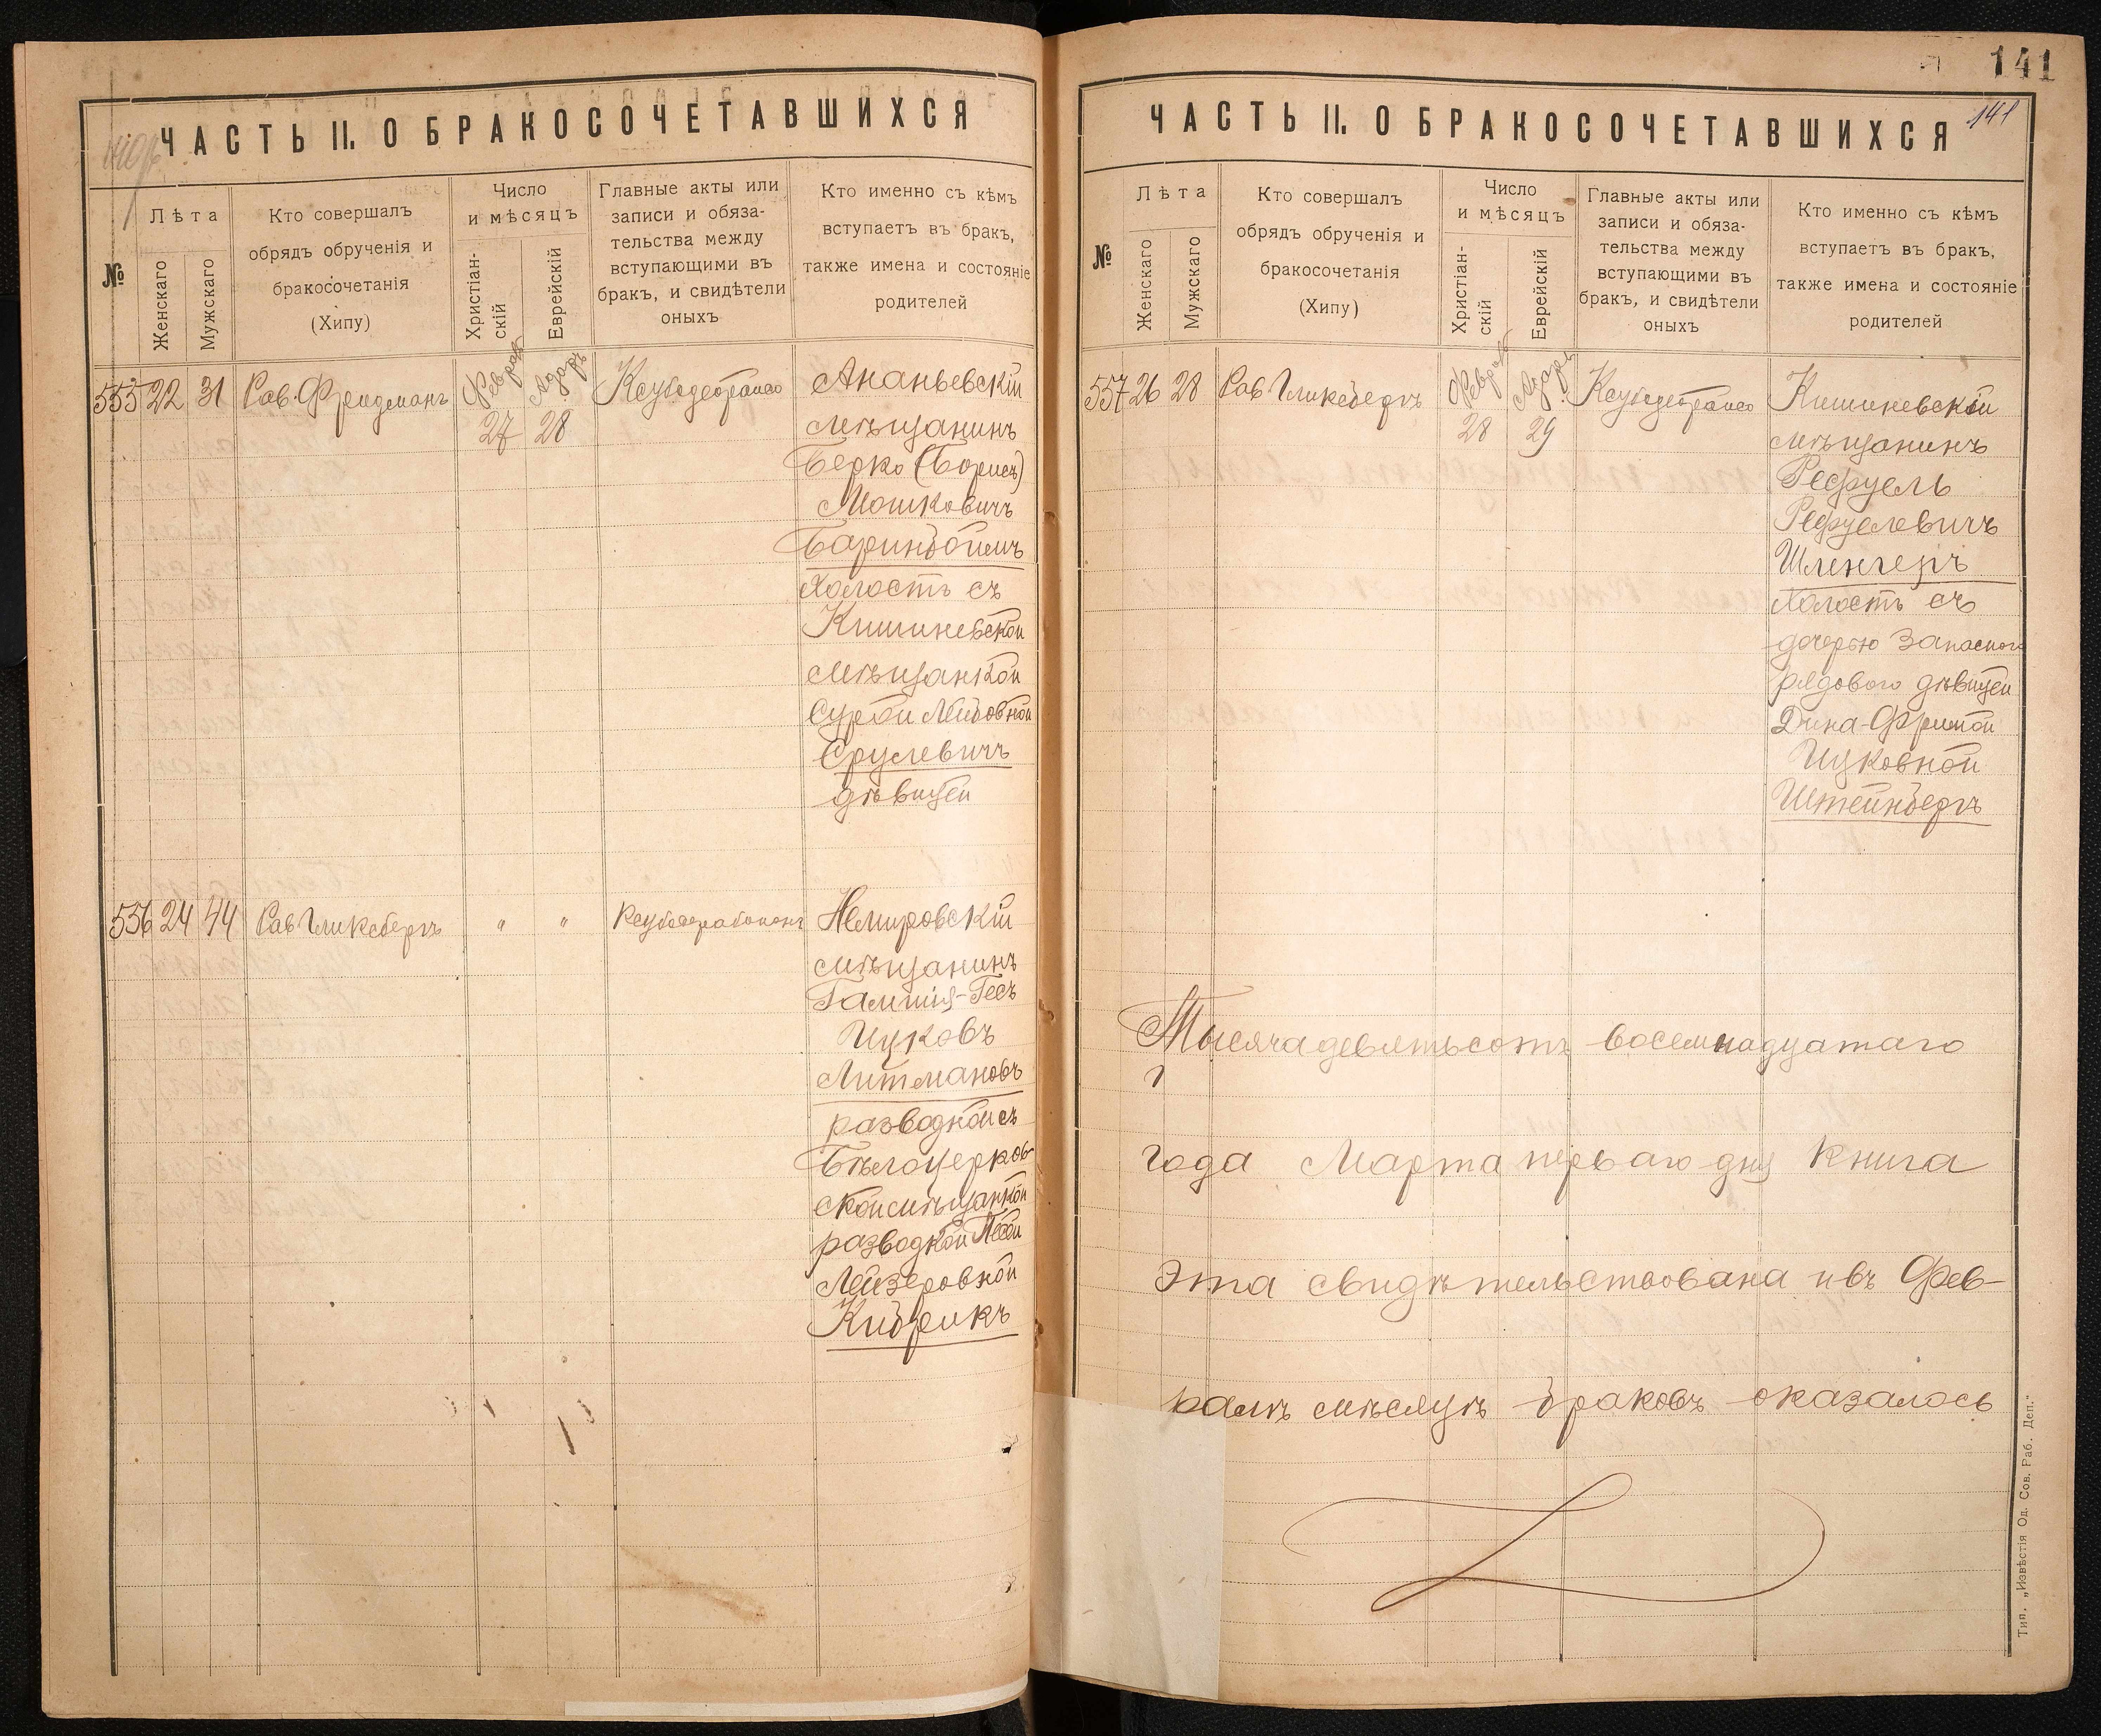 ЧАСТЬ II. О БРАКОСОЧЕТАВШИХСЯ
№
Лѣта
Женскаго
Мужскаго
Кто совершалъ
обрядъ обрученія и
бракосочетанія
(Хипу)
Число
и мѣсяцъ
Христіан-
скій
Еврейскій
Главные акты или
записи и обяза-
тельства между
вступающими въ
бракъ, и свидѣтели
оныхъ
Кто именно съ кѣмъ
вступаетъ въ бракъ,
также имена и состояніе
родителей
555 22 31 Рав. Фридманъ
Февраль 27
Адаръ 28
Ананьевскій
мѣщанинъ
Берко (Борисъ)
Мошковичъ
Баринбоймъ
холостъ съ
Кишиневской
мѣщанкой
Сурой Лейбовной
Срулевичъ
дѣвицей
556 24 44 Рав Гликсбергъ " "
Немировскій
мѣщанинъ
Ицковъ
Литмановъ
разводной съ
Бѣлоцерков-
ской мѣщанкой
разводкой Песей
Лейзеровной
Кибрикъ
141
141
ЧАСТЬ II. О БРАКОСОЧЕТАВШИХСЯ
№
Лѣта
Женскаго
Мужскаго
Кто совершалъ
обрядъ обрученія и
бракосочетанія
(Хипу)
Число
и мѣсяцъ
Христіан-
скій
Еврейскій
Главные акты или
записи и обяза-
тельства между
вступающими въ
бракъ, и свидѣтели
оныхъ
Кто именно съ кѣмъ
вступаетъ въ бракъ,
также имена и состояніе
родителей
557 26 28 Рав Гликсбергъ
Февраль 28
Адаръ 29
Кишиневскій
мѣщанинъ
Рефуель
Рефуелевичъ
Шленгеръ
холостъ съ
дочерью Запасного
рядового дѣвицей
Дина-Фримой
Ицковной
Штейнбергъ
Тысяча девятьсотъ восемнадцатаго
года Марта перваго дня книга
эта свидѣтельствована и въ Фев-
ралѣ мѣсяцѣ браковъ оказалось
Тип. „Извѣстія Од. Сов. Раб. Деп."